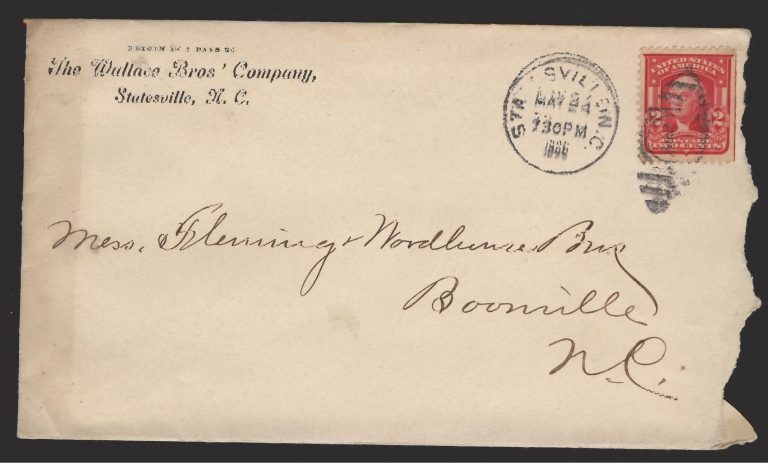 RETURN IN 5 DAYS TO
The Wallace Bros' Company,
Statesville, N. C.
STATESVILLE N.C.
MAY 24
730PM
UNITED STATES
OF AMERICA
2 2
POSTAGE
TWO CENTS
Mess. Fleming & Woodhouse Bros
Boonville
N.C.